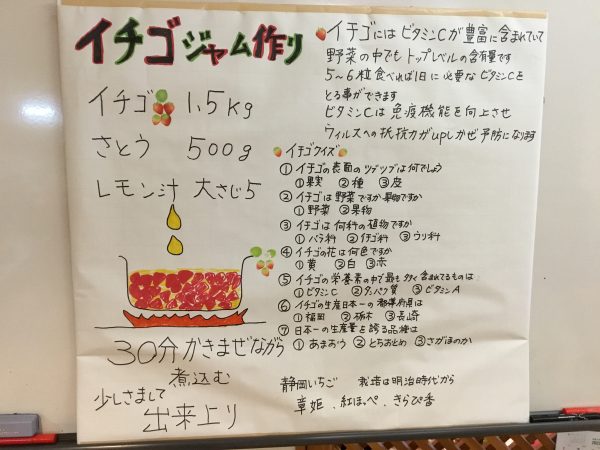 イチゴジャム作り
イチゴ 1.5kg
さとう 500g
レモン汁 大さじ5
30分かきまぜながら
煮込む
少しさまして
出来上り
イチゴにはビタミンCが豊富に含まれていて
野菜の中でもトップレベルの含有量です
5～6粒食べれば1日に必要なビタミンCを
とる事ができます
ビタミンCは免疫機能を向上させ
ウィルスへの抵抗力がupしかぜ予防になります
イチゴクイズ
① イチゴの表面のツブツブは何でしょう
①果実 ②種 ③皮
② イチゴは野菜ですか果物ですか
①野菜 ②果物
③ イチゴは何科の植物ですか
①バラ科 ②イチゴ科 ③ウリ科
④ イチゴの花は何色ですか
①黄 ②白 ③赤
⑤ イチゴの栄養素の中で最も多く含まれてるものは
①ビタミンC ②タンパク質 ③ビタミンA
⑥ イチゴの生産日本一の都道府県は
①福岡 ②栃木 ③長崎
⑦ 日本一の生産量を誇る品種は
①あまおう ②とちおとめ ③さがほのか
静岡いちご 栽培は明治時代から
章姫、紅ほっぺ、きらぴ香